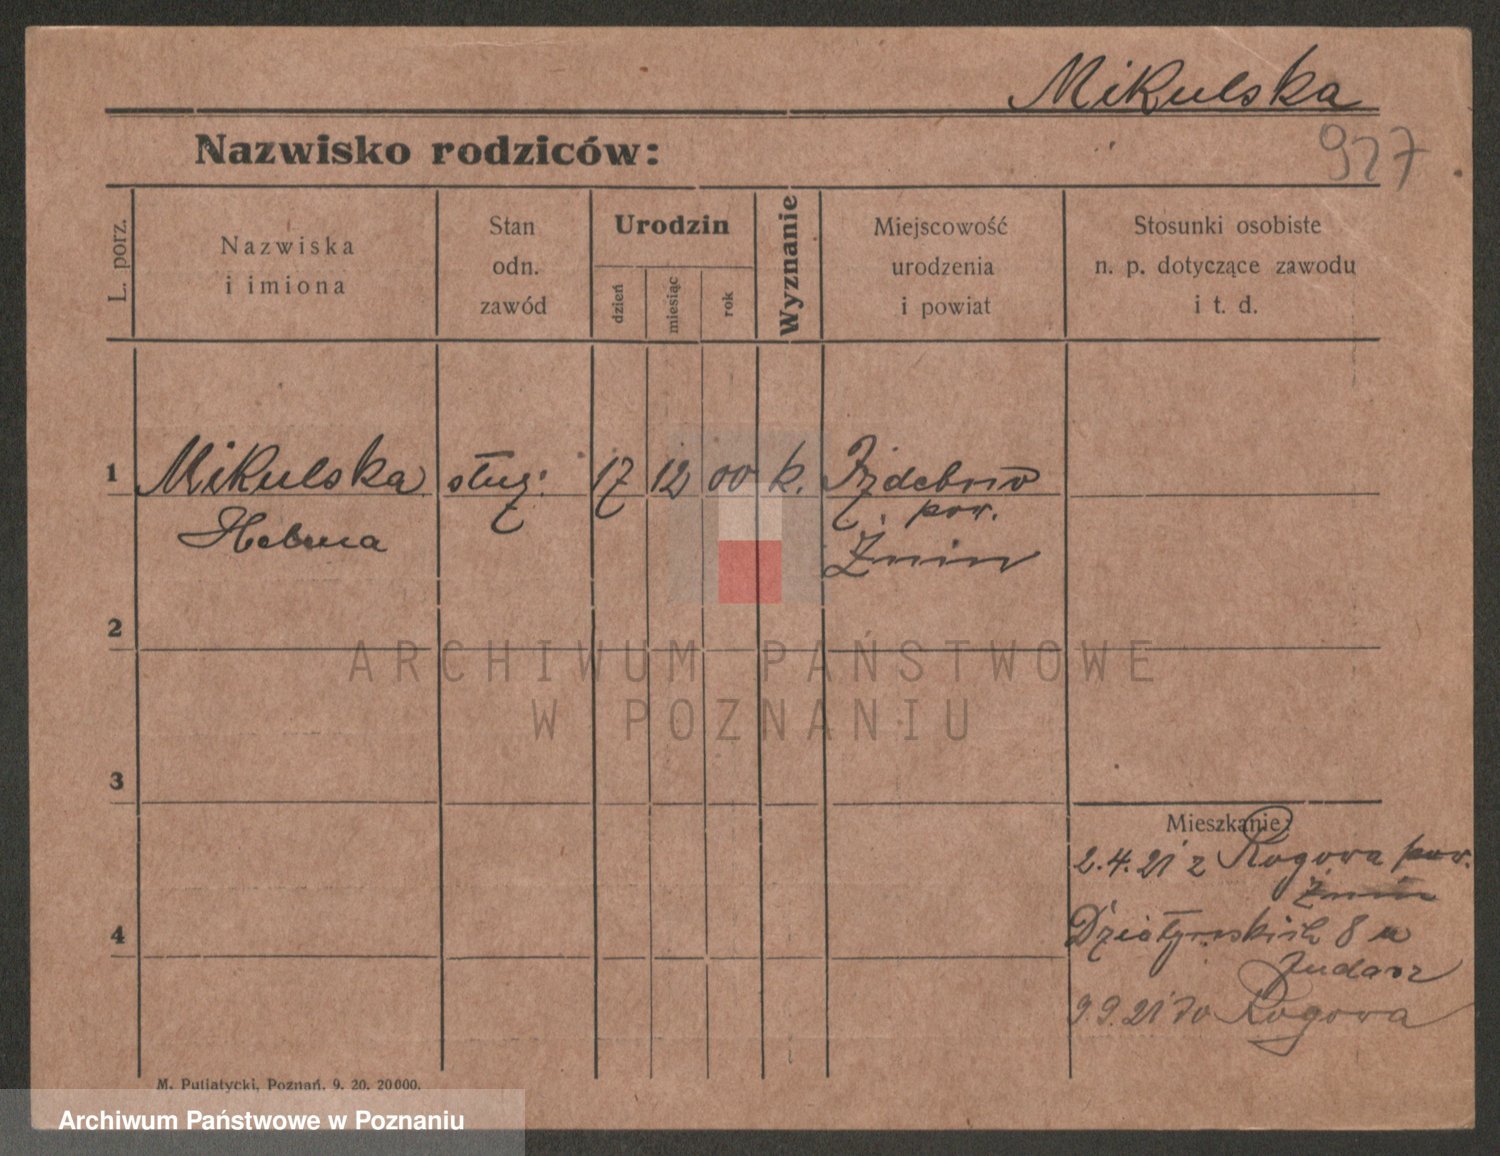 Mikulska
Nazwisko rodziców:
927
L. porz.
Nazwiska
i imiona
Stan
odn.
zawód
Urodzin
dzień
miesiąc
rok
Wyznanie
Miejscowość
urodzenia
i powiat
Stosunki osobiste
n. p. dotyczące zawodu
i t. d.
1
Mikulska
Helena
służ.
17
12
00
k.
Izdebno
pow.
Żnin
2
3
4
Mieszkanie:
2.4.21 z Rogowa pow.
Żnin
Działyńskich 8 u
9.9.21 do Rogowa
M. Putiatycki, Poznań. 9. 20. 20000.
ARCHIWUM PAŃSTWOWE
W POZNANIU
Archiwum Państwowe w Poznaniu